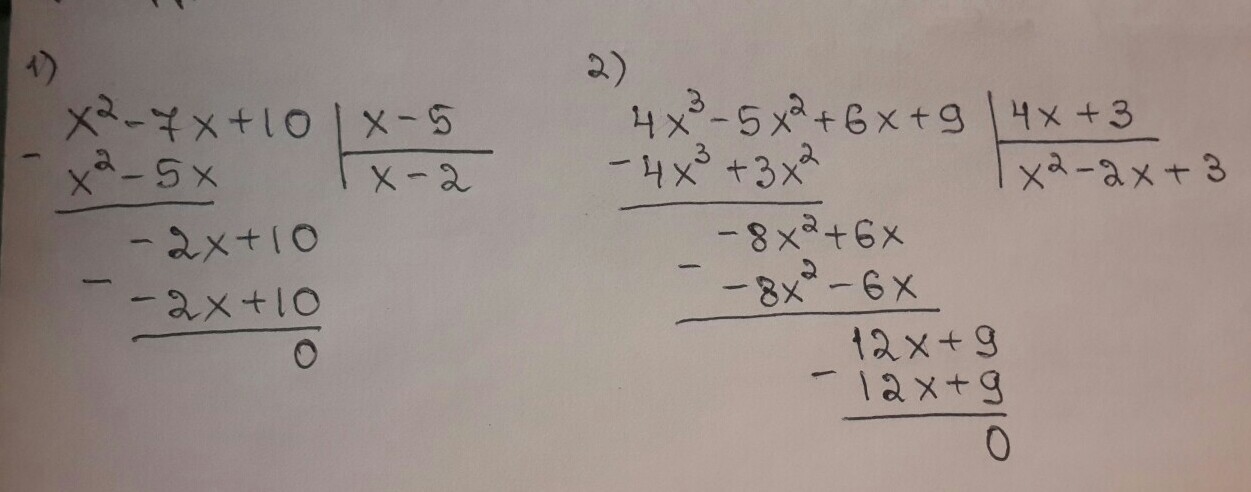 1)
x² - 7x + 10 | x - 5
- x² - 5x | x - 2
- 2x + 10
- - 2x + 10
0
2)
4x³ - 5x² + 6x + 9 | 4x + 3
- 4x³ + 3x² | x² - 2x + 3
- 8x² + 6x
- - 8x² - 6x
12x + 9
- 12x + 9
0